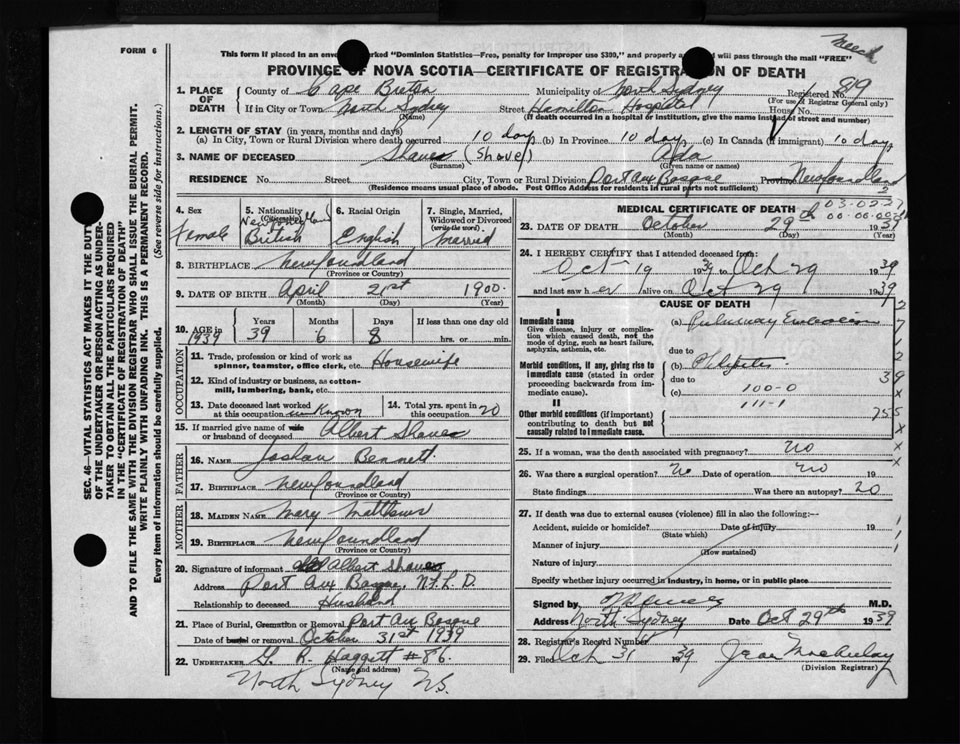 FORM 6
This form if placed in an envelope marked "Dominion Statistics—Free, penalty for improper use $300," and properly will pass through the mail "FREE"
PROVINCE OF NOVA SCOTIA—CERTIFICATE OF REGISTRATION OF DEATH
1. PLACE OF DEATH County of Cape Breton Municipality of North Sydney Registered No. 819
(For use of Registrar General only)
If in City or Town North Sydney Street Hamilton Hospital House No.
(Name) (If death occurred in a hospital or institution, give the name instead of street and number)
2. LENGTH OF STAY (in years, months and days)
(a) In City, Town or Rural Division where death occurred 10 days (b) In Province 10 days (c) In Canada (if immigrant) 10 days
3. NAME OF DECEASED Shaves (Shave) Ada
(Surname) (Given name or names)
RESIDENCE No. Street City, Town or Rural Division Port Aux Basque Province Newfoundland
(Residence means usual place of abode. Post Office Address for residents in rural parts not sufficient)
SEC. 46—VITAL STATISTICS ACT MAKES IT THE DUTY
OF THE UNDERTAKER OR PERSON ACTING AS UNDER-
TAKER TO OBTAIN ALL THE PARTICULARS REQUIRED
IN THE "CERTIFICATE OF REGISTRATION OF DEATH"
AND TO FILE THE SAME WITH THE DIVISION REGISTRAR WHO SHALL ISSUE THE BURIAL PERMIT.
WRITE PLAINLY WITH UNFADING INK. THIS IS A PERMANENT RECORD.
Every item of information should be carefully supplied. (See reverse side for instructions.)
4. Sex Female
5. Nationality (Citizenship) Newfoundland British
6. Racial Origin English
7. Single, Married, Widowed or Divorced (write the word) Married
8. BIRTHPLACE Newfoundland
(Province or Country)
9. DATE OF BIRTH April 21st 1900
(Month) (Day) (Year)
10. AGE in 1939 Years 39 Months 6 Days 8 If less than one day old hrs. or min.
OCCUPATION
11. Trade, profession or kind of work as spinner, teamster, office clerk, etc. Housewife
12. Kind of industry or business, as cotton-mill, lumbering, bank, etc.
13. Date deceased last worked at this occupation unKnown
14. Total yrs. spent in this occupation 20
15. If married give name of wife or husband of deceased Albert Shaves
FATHER
16. NAME Joshau Bennett
17. BIRTHPLACE Newfoundland
(Province or Country)
MOTHER
18. MAIDEN NAME Mary Matthews
19. BIRTHPLACE Newfoundland
(Province or Country)
20. Signature of informant Albert Shaves
Address Port Aux Basque, N.F.L.D.
Relationship to deceased Husband
21. Place of Burial, Cremation or Removal Port Aux Basque
Date of burial or removal October 31st 1939
22. UNDERTAKER G. R. Haggett #86.
(Name and address)
North Sydney N.S.
MEDICAL CERTIFICATE OF DEATH
23. DATE OF DEATH October 29 1939
(Month) (Day) (Year)
24. I HEREBY CERTIFY that I attended deceased from:
Oct 19 1939 to Oct 29 1939
and last saw her alive on Oct 29 1939
CAUSE OF DEATH
I
Immediate cause
Give disease, injury or complication which caused death, not the mode of dying, such as heart failure, asphyxia, asthenia, etc.
(a) Pulmonary Embolism
due to
Morbid conditions, if any, giving rise to immediate cause (stated in order proceeding backwards from immediate cause).
(b) Phlebitis
due to
(c) 100-0
111-1
II
Other morbid conditions (if important) contributing to death but not causally related to immediate cause.
25. If a woman, was the death associated with pregnancy? No
26. Was there a surgical operation? No Date of operation No 19
State findings Was there an autopsy? No
27. If death was due to external causes (violence) fill in also the following:—
Accident, suicide or homicide? Date of injury 19
(State which)
Manner of injury
(How sustained)
Nature of injury
Specify whether injury occurred in industry, in home, or in public place
Signed by M.D.
Address North Sydney Date Oct 29th 1939
28. Registrar's Record Number
29. Filed Oct 31 1939 Jean MacAulay
(Division Registrar)